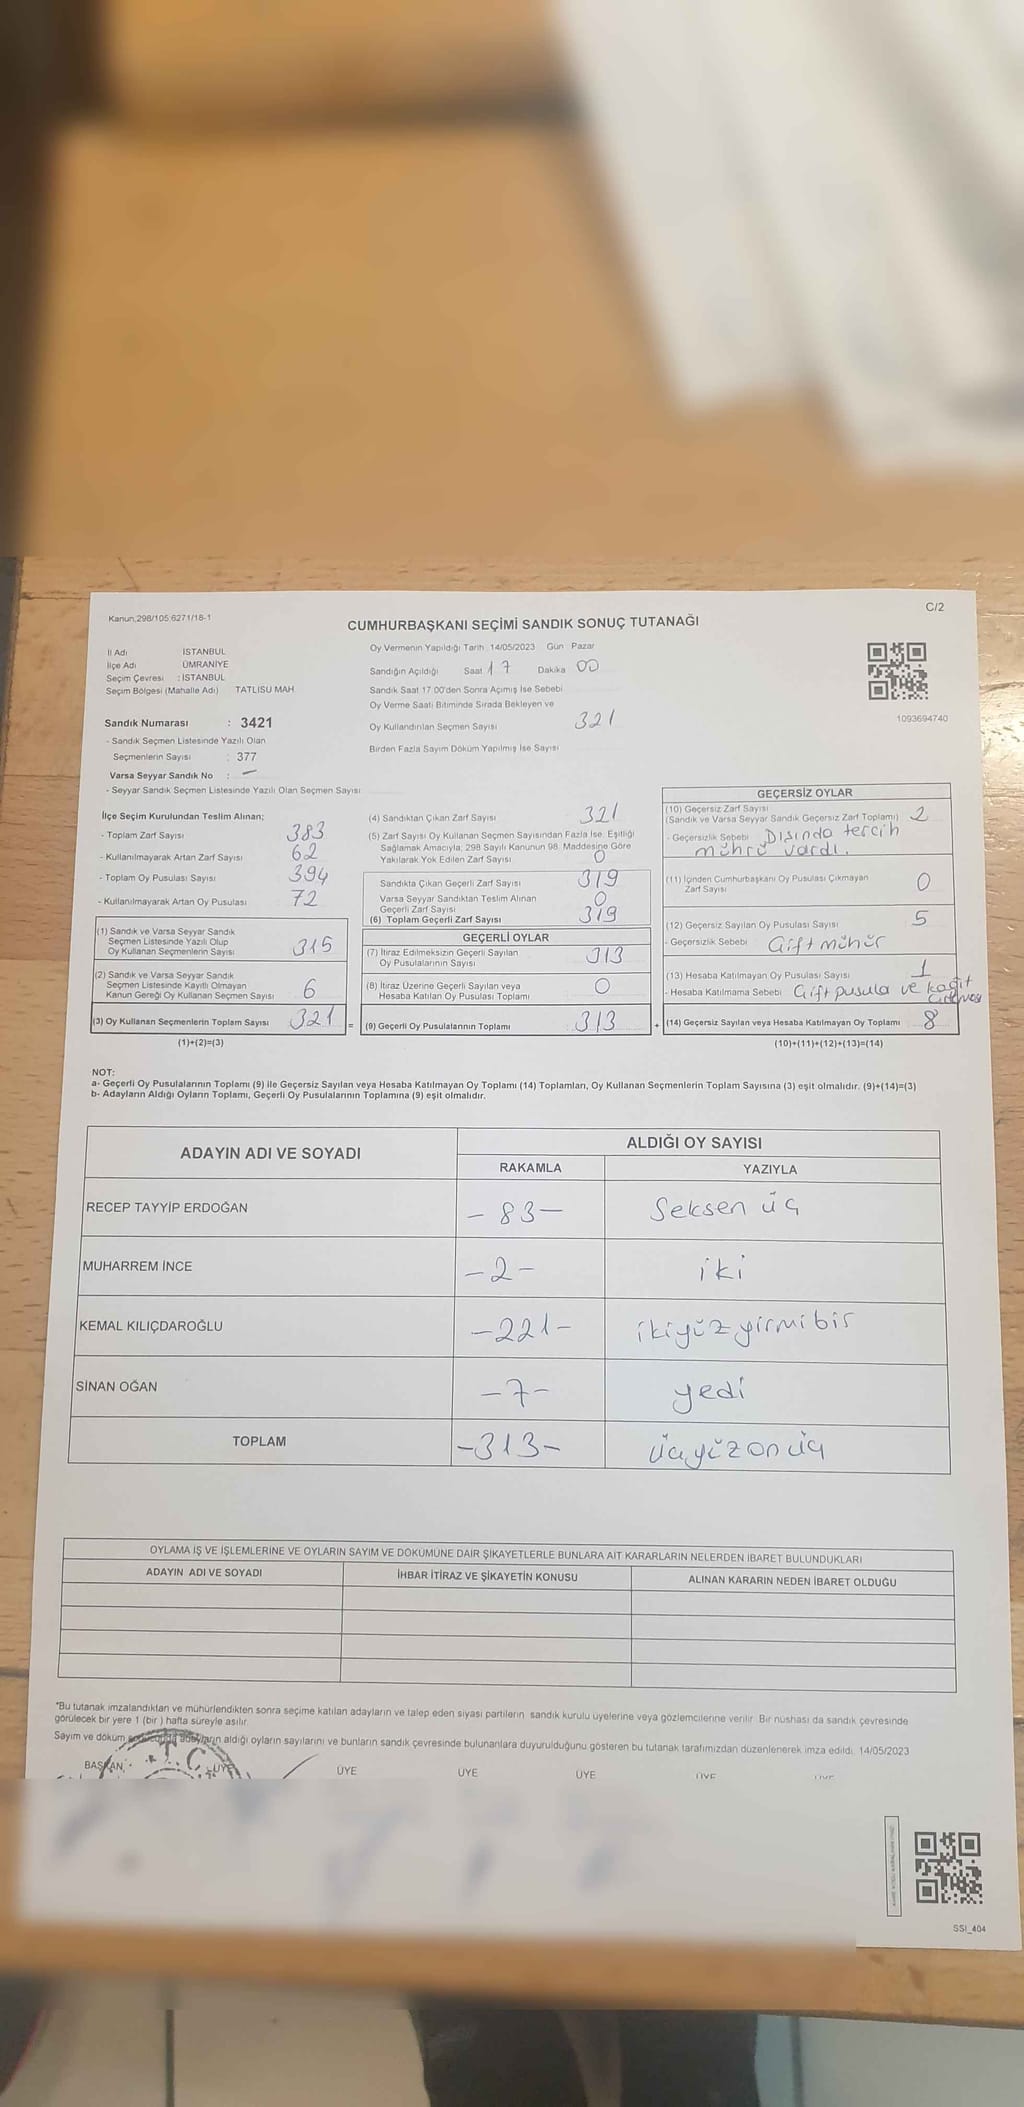 Kanun,298/105 6271/18-1
C/2
CUMHURBAŞKANI SEÇİMİ SANDIK SONUÇ TUTANAĞI
İl Adı İSTANBUL
İlçe Adı ÜMRANİYE
Seçim Çevresi : İSTANBUL
Seçim Bölgesi (Mahalle Adı) TATLISU MAH
Sandık Numarası : 3421
- Sandık Seçmen Listesinde Yazılı Olan
Seçmenlerin Sayısı : 377
Varsa Seyyar Sandık No : –
- Seyyar Sandık Seçmen Listesinde Yazılı Olan Seçmen Sayısı
Oy Vermenin Yapıldığı Tarih 14/05/2023 Gün Pazar
Sandığın Açıldığı Saat 17 Dakika 00
Sandık Saat 17 00'den Sonra Açımış İse Sebebi
Oy Verme Saati Bitiminde Sırada Bekleyen ve
Oy Kullandırılan Seçmen Sayısı 321
Birden Fazla Sayım Döküm Yapılmış İse Sayısı
1093694740
İlçe Seçim Kurulundan Teslim Alınan;
- Toplam Zarf Sayısı 383
- Kullanılmayarak Artan Zarf Sayısı 62
- Toplam Oy Pusulası Sayısı 394
- Kullanılmayarak Artan Oy Pusulası 72
(1) Sandık ve Varsa Seyyar Sandık
Seçmen Listesinde Yazılı Olup
Oy Kullanan Seçmenlerin Sayısı 315
(2) Sandık ve Varsa Seyyar Sandık
Seçmen Listesinde Kayıtlı Olmayan
Kanun Gereği Oy Kullanan Seçmen Sayısı 6
(3) Oy Kullanan Seçmenlerin Toplam Sayısı 321 =
(1)+(2)=(3)
(4) Sandıktan Çıkan Zarf Sayısı 321
(5) Zarf Sayısı Oy Kullanan Seçmen Sayısından Fazla İse. Eşitliği
Sağlamak Amacıyla; 298 Sayılı Kanunun 98. Maddesine Göre
Yakılarak Yok Edilen Zarf Sayısı 0
Sandıkta Çıkan Geçerli Zarf Sayısı 319
Varsa Seyyar Sandıktan Teslim Alınan
Geçerli Zarf Sayısı 0
(6) Toplam Geçerli Zarf Sayısı 319
GEÇERLİ OYLAR
(7) İtiraz Edilmeksizin Geçerli Sayılan
Oy Pusulalarının Sayısı 313
(8) İtiraz Üzerine Geçerli Sayılan veya
Hesaba Katılan Oy Pusulası Toplamı 0
(9) Geçerli Oy Pusulalarının Toplamı : 313 +
GEÇERSİZ OYLAR
(10) Geçersiz Zarf Sayısı
(Sandık ve Varsa Seyyar Sandık Geçersiz Zarf Toplamı) 2
- Geçersizlik Sebebi Dışında tercih
mührü vardı.
(11) İçinden Cumhurbaşkanı Oy Pusulası Çıkmayan
Zarf Sayısı 0
(12) Geçersiz Sayılan Oy Pusulası Sayısı 5
- Geçersizlik Sebebi Çift mühür
(13) Hesaba Katılmayan Oy Pusulası Sayısı 1
- Hesaba Katılmama Sebebi Çift pusula ve kağıt
(14) Geçersiz Sayılan veya Hesaba Katılmayan Oy Toplamı 8
(10)+(11)+(12)+(13)=(14)
NOT:
a- Geçerli Oy Pusulalarının Toplamı (9) ile Geçersiz Sayılan veya Hesaba Katılmayan Oy Toplamı (14) Toplamları, Oy Kullanan Seçmenlerin Toplam Sayısına (3) eşit olmalıdır. (9)+(14)=(3)
b- Adayların Aldığı Oyların Toplamı, Geçerli Oy Pusulalarının Toplamına (9) eşit olmalıdır.
ADAYIN ADI VE SOYADI
ALDIĞI OY SAYISI
RAKAMLA YAZIYLA
RECEP TAYYİP ERDOĞAN - 83 - Seksen üç
MUHARREM İNCE - 2 - iki
KEMAL KILIÇDAROĞLU - 221 - ikiyüz yirmi bir
SİNAN OĞAN - 7 - yedi
TOPLAM - 313 - üçyüz on üç
OYLAMA İŞ VE İŞLEMLERİNE VE OYLARIN SAYIM VE DÖKÜMÜNE DAİR ŞİKAYETLERLE BUNLARA AİT KARARLARIN NELERDEN İBARET BULUNDUKLARI
ADAYIN ADI VE SOYADI İHBAR İTİRAZ VE ŞİKAYETİN KONUSU ALINAN KARARIN NEDEN İBARET OLDUĞU
*Bu tutanak imzalandıktan ve mühürlendikten sonra seçime katılan adayların ve talep eden siyasi partilerin sandık kurulu üyelerine veya gözlemcilerine verilir. Bir nüshası da sandık çevresinde
görülecek bir yere 1 (bir ) hafta süreyle asılır.
Sayım ve döküm sonucunda adayların aldığı oyların sayılarını ve bunların sandık çevresinde bulunanlara duyurulduğunu gösteren bu tutanak tarafımızdan düzenlenerek imza edildi. 14/05/2023
T.C.
BAŞKAN, ÜYE ÜYE ÜYE ÜYE ÜYE ÜYE
SSI_404